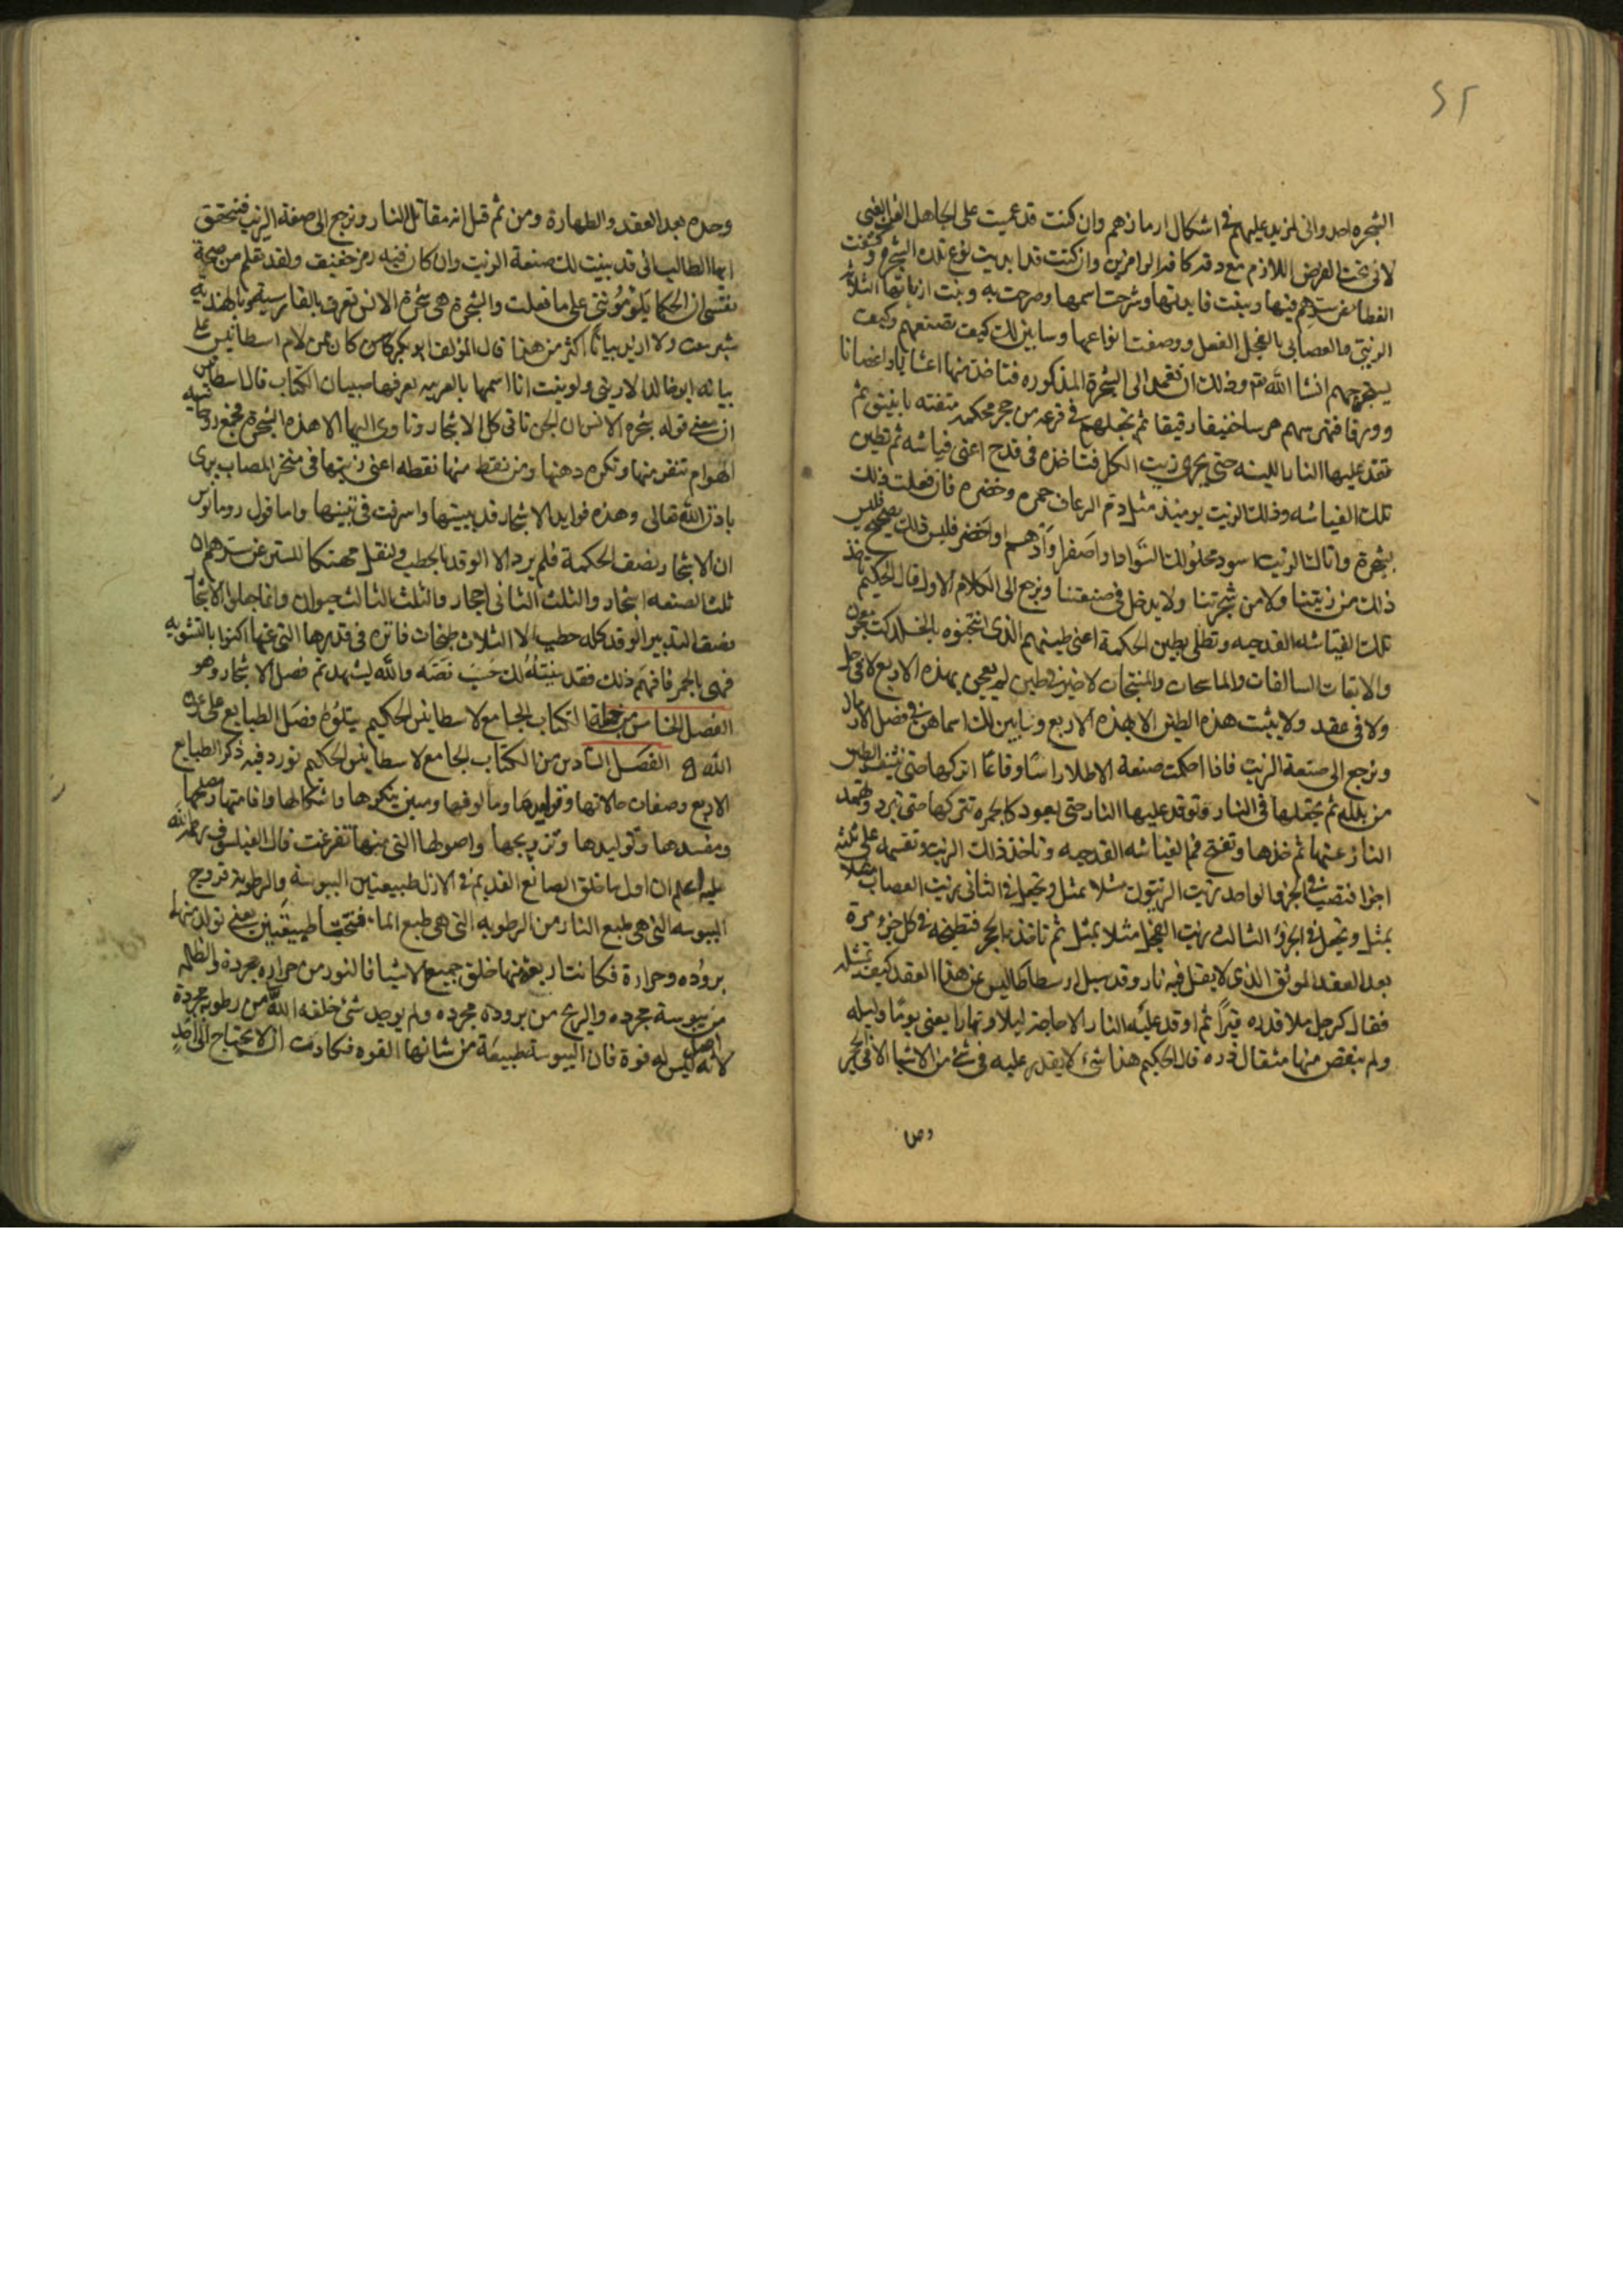 ٥٢
الشجره احد وانى لمزيد عليهم فى اشكال ارمازهم وان كنت قد عميت على الجاهل الغبى
لانى تحت الفرض اللازم مع دقة وان كنت قد ابديت نوع تلك الشجره وكشفت
الغطا عن سترهم فيها وبينت فايدتها وشرحت اسمها وصرحت به وبينت ازياتها الثلاثه
الزيتى والعصابى بالفجل الفصل ووصفت انواعها وسابين لك كيف تصنعهم وكيف
يستخرجهم انشا الله تع وذلك ان تعمد الى الشجرة المذكوره فتاخذ منها اعشابا واغصانا
وورقا فتهرسهم هرسا خفيفا رقيقا ثم تجعلهم فى قرعه من حجر محكمه متقنه بانبيق ثم
تقد عليها النار اللينه حتى يجرى زيت الكل فتاخذه فى قدح اعنى فياشه ثم تطين
تلك الفياشه وذلك الزيت يوميذ مثل دم الرعاف حمره وخضره فان فعلت ذلك
بشجرة واتاك الزيت اسود محلولك السواد او اصفر او ادهم او اخضر فليس ذلك بصحيح فليس
ذلك من زيتنا ولا من شجرتنا ولا يدخل فى صنعتنا ونرجع الى الكلام الاول قال الحكيم
تلك الفياشه القدحيه وتطلى بطين الحكمة اعنى طينهم الذى
والماسحات والمنتجات لا خير فى طين لم يعجن بهذه الاربع لا فى حل
ولا فى عقد ولا يثبت هذه الطين الا بهذه الاربع وسابين لك اسماهن فى فصل
ونرجع الى صنعة الزيت فاذا احكمت صنعة الاطلا راسا وقاعا اتركها حتى ينشف الطين
من بلله ثم يجعلها فى النار وتوقد عليها النار حتى يعود كالجمره تتركها حتى تبرد وتخمد
النار عنها ثم خذها وتفتح فم الفياشه القدحيه وتاخذ ذلك الزيت وتقسمه على ثلثه
اجزا فتضيف الجزو الواحد بزيت الزيتون مثلا بمثل وتجعل فى الثانى بزيت العصاب مثلا
بمثل وتجعل فى الجزو الثالث بزيت الفجل مثلا بمثل ثم تاخذ الحجر فتطبخه فى كل جزء مرة
بعد العقد الموثق الذى لا يقتل فيه نار وقد سيل ارسطاطاليس عن هذا العقد كيف تمثله
فقال كرجل ملا قدره قيرا ثم اوقد عليه النار الاحاجته ليلا ونهارا يعنى يوما وليله
ولم ينقص منها مثقال ذره قال الحكيم هذا شىء لا يقدر عليه فى شى من الاشيا الا فى الحجر
وحد
وحده بعد العقد والطهارة ومن ثم قيل انه مقاتل النار ونرجع الى صفة الزيت فتحقق
ايها الطالب انى قد بينت لك صنعة الزيت وان كان فيه رمز خفيف ولقد تقلم من صحة
نفسى ان الحكما على ما فعلت والشجرة هى شجرة الانس تعرف بالفارسية وبالهنديه
ولا ازيد بيانا اكثر من هذا قال المؤلف ابو بكر كان من كلام اسطانيس على
بيانه ابو خالد ولو بينت انا اسمها بالعربيه يعرفها صبيان الكتاب قال اسطانس
ان معنى قوله شجره الانس ان الجن تاتى كل الاشجار وتاوى اليها الا هذه الشجرة فجميع
الهوام تنفر منها وتكره دهنها ومن نقط منها نقطه اعنى زيتها فى منخر المصاب برى
باذن الله تعالى وهذه فوايد الاشجار قد بينتها واسرفت فى تبينها واما قول روسانوس
ان الاشجار نصف الحكمة فلم يرد الا الوقد بالحطب
ثلث الصنعه اشجار والثلث الثانى احجار والثلث الثالث حيوان وانما جعلوا الاشجار
نصف التدبير الوقد كله حطب الا الثلاث طبخات فاتره فى قدرها التى عنها اكنوا بالتشويه
فهى بالجمر فافهم ذلك فقد بينته لك حسب نصه والله يشهد تم فصل الاشجار وهو
الفصل الخامس من خطة الكتاب الجامع لاسطانيس الحكيم يتلوه فصل الطبايع على عون
الله الفصل السادس من الكتاب الجامع لاسطانيس الحكيم نورد فيه ذكر الطبايع
الاربع وصفات حالاتها وقوايدها ومالوفها ومبين ينكرها واشكالها واقامتها ومصلحها
ومفسدها وتوليدها وتزويجها واصولها التى منها تفرعت قال الفيلسوف رحمة الله
عليه اعلم ان اول ما خلق الصانع القديم فى الازل طبيعتين اليبوسة والرطوبة فزوج
اليبوسه التى هى طبع النار من الرطوبه التى هى طبع الما فنتجتا طبيعتين يعنى تولد منهما
بروده وحرارة فكانت اربعة منها خلق جميع الاشيا فالنور من حراره مجردة والظلمه
من يبوسة مجرده والريح من برودة مجرده ولم يوجد شىء خلقه الله من رطوبة مجردة
لانه ليس له قوة فان اليبوسة طبيعة من شانها القوه فكادت ان لا يحتاج الى